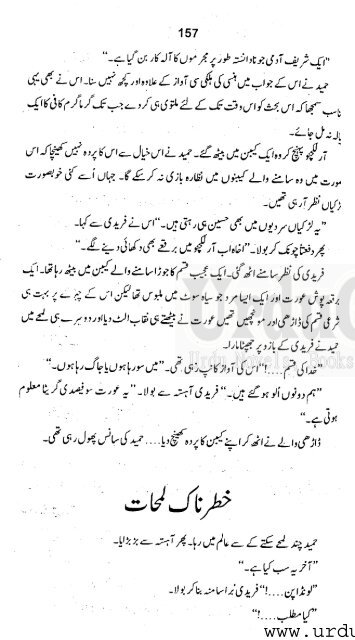 157
"ایک شریف آدمی جو نادانستہ طور پر مجرموں کا آلہ کار بن گیا ہے۔"
حمید نے اس کے جواب میں ہنسی کی ہلکی سی آواز کے علاوہ اور کچھ نہیں سنا۔ اس نے بھی یہی
ناسب سمجھا کہ اس بحث کو اس وقت تک کے لئے ملتوی ہی کر دے جب تک گرما گرم کافی کا ایک
یالہ نہ مل جائے۔
آر لکچو پہنچ کر وہ ایک کیبن میں بیٹھ گئے۔ حمید نے اس خیال سے اس کا پردہ نہیں کھینچا کہ اس
مورت میں وہ سامنے والے کیبنوں میں نظارہ بازی نہ کر سکے گا۔ جہاں اُسے کئی خوبصورت
ڑکیاں نظر آرہی تھیں۔
"یہ لڑکیاں سردیوں میں بھی حسین ہی رہتی ہیں۔" اس نے فریدی سے کہا۔
پھر دفعتاً چونک کر بولا۔ "اخاہ اب آر لکچو میں برقعے بھی دکھائی دینے لگے۔"
فریدی کی نظر سامنے اٹھ گئی۔ ایک عجیب قسم کا جوڑا سامنے والے کیبن میں بیٹھ رہا تھا۔ ایک
برقعہ پوش عورت اور ایک ایسا مرد جو سیاہ سوٹ میں ملبوس تھا لیکن اس کے چہرے پر بہت ہی
شرعی قسم کی ڈاڑھی اور مونچھیں تھیں عورت نے بیٹھتے ہی نقاب الٹ دیا اور دوسرے ہی لمحے میں
حمید نے فریدی کے بازو پر جھپٹا مارا۔
"خدا کی قسم....!" اس کی آواز کانپ رہی تھی۔ "میں سو رہا ہوں یا جاگ رہا ہوں۔"
"ہم دونوں اُلو ہو گئے ہیں۔" فریدی آہستہ سے بولا۔ "یہ عورت سو فیصدی گریٹا معلوم
ہوتی ہے۔"
ڈاڑھی والے نے اٹھ کر اپنے کیبن کا پردہ کھینچ دیا.... حمید کی سانس پھول رہی تھی۔
خطرناک لمحات
حمید چند لمحے سکتے کے سے عالم میں رہا۔ پھر آہستہ سے بڑبڑایا۔
"آخر یہ سب کیا ہے۔"
"لونڈا پن....!" فریدی بُرا سا منہ بنا کر بولا۔
"کیا مطلب....!"
www.urdu